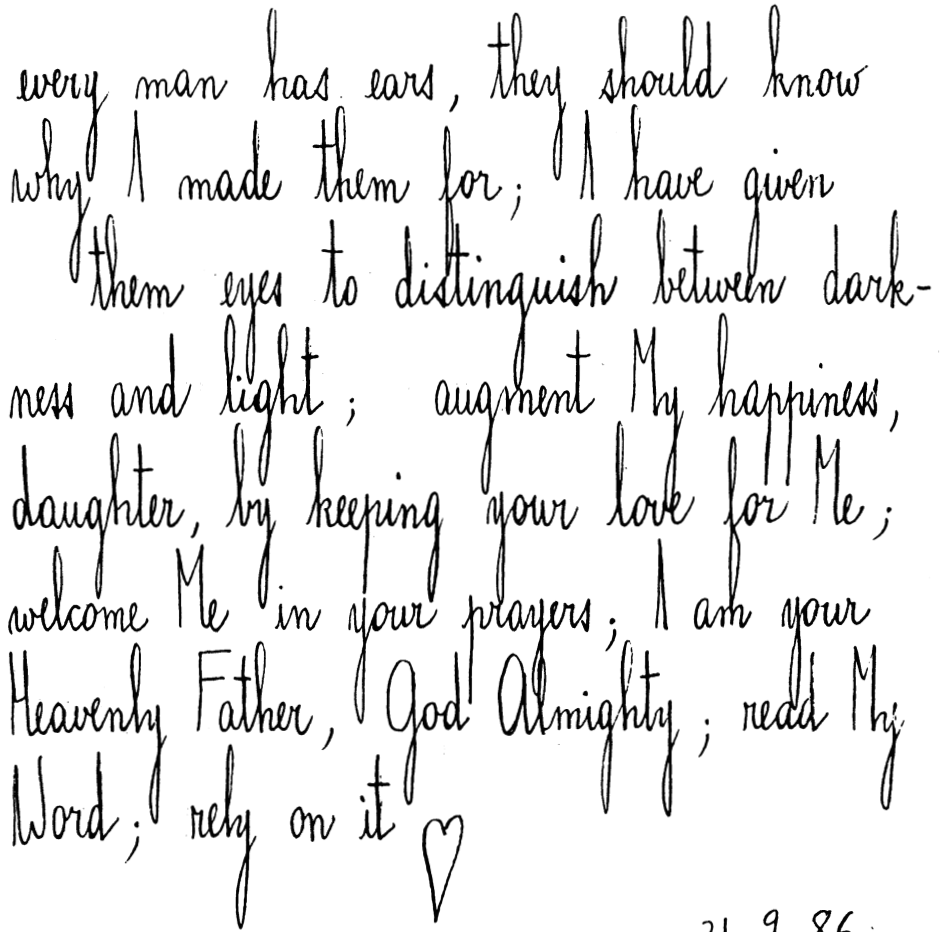 every man has ears, they should know
why I made them for; I have given
them eyes to distinguish between dark-
ness and light; augment My happiness,
daughter, by keeping your love for Me;
welcome Me in your prayers; I am your
Heavenly Father, God Almighty; read My
Word; rely on it ♡
9. 86